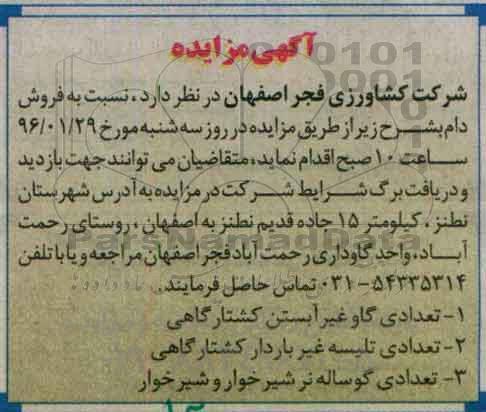 آگهی مزایده
شرکت کشاورزی فجر اصفهان در نظر دارد، نسبت به فروش
دام بشرح زیر از طریق مزایده در روز سه شنبه مورخ ۹۶/۰۱/۲۹
ساعت ۱۰ صبح اقدام نماید، متقاضیان می توانند جهت بازدید
و دریافت برگ شرایط شرکت در مزایده به آدرس شهرستان
نطنز، کیلومتر ۱۵ جاده قدیم نطنز به اصفهان، روستای رحمت
آباد، واحد گاوداری رحمت آباد فجر اصفهان مراجعه و یا با تلفن
۰۳۱-۵۴۳۳۵۳۱۴ تماس حاصل فرمایند.
۱- تعدادی گاو غیر آبستن کشتارگاهی
۲- تعدادی تلیسه غیر باردار کشتارگاهی
۳- تعدادی گوساله نر شیر خوار و شیر خوار
ParsNamadData